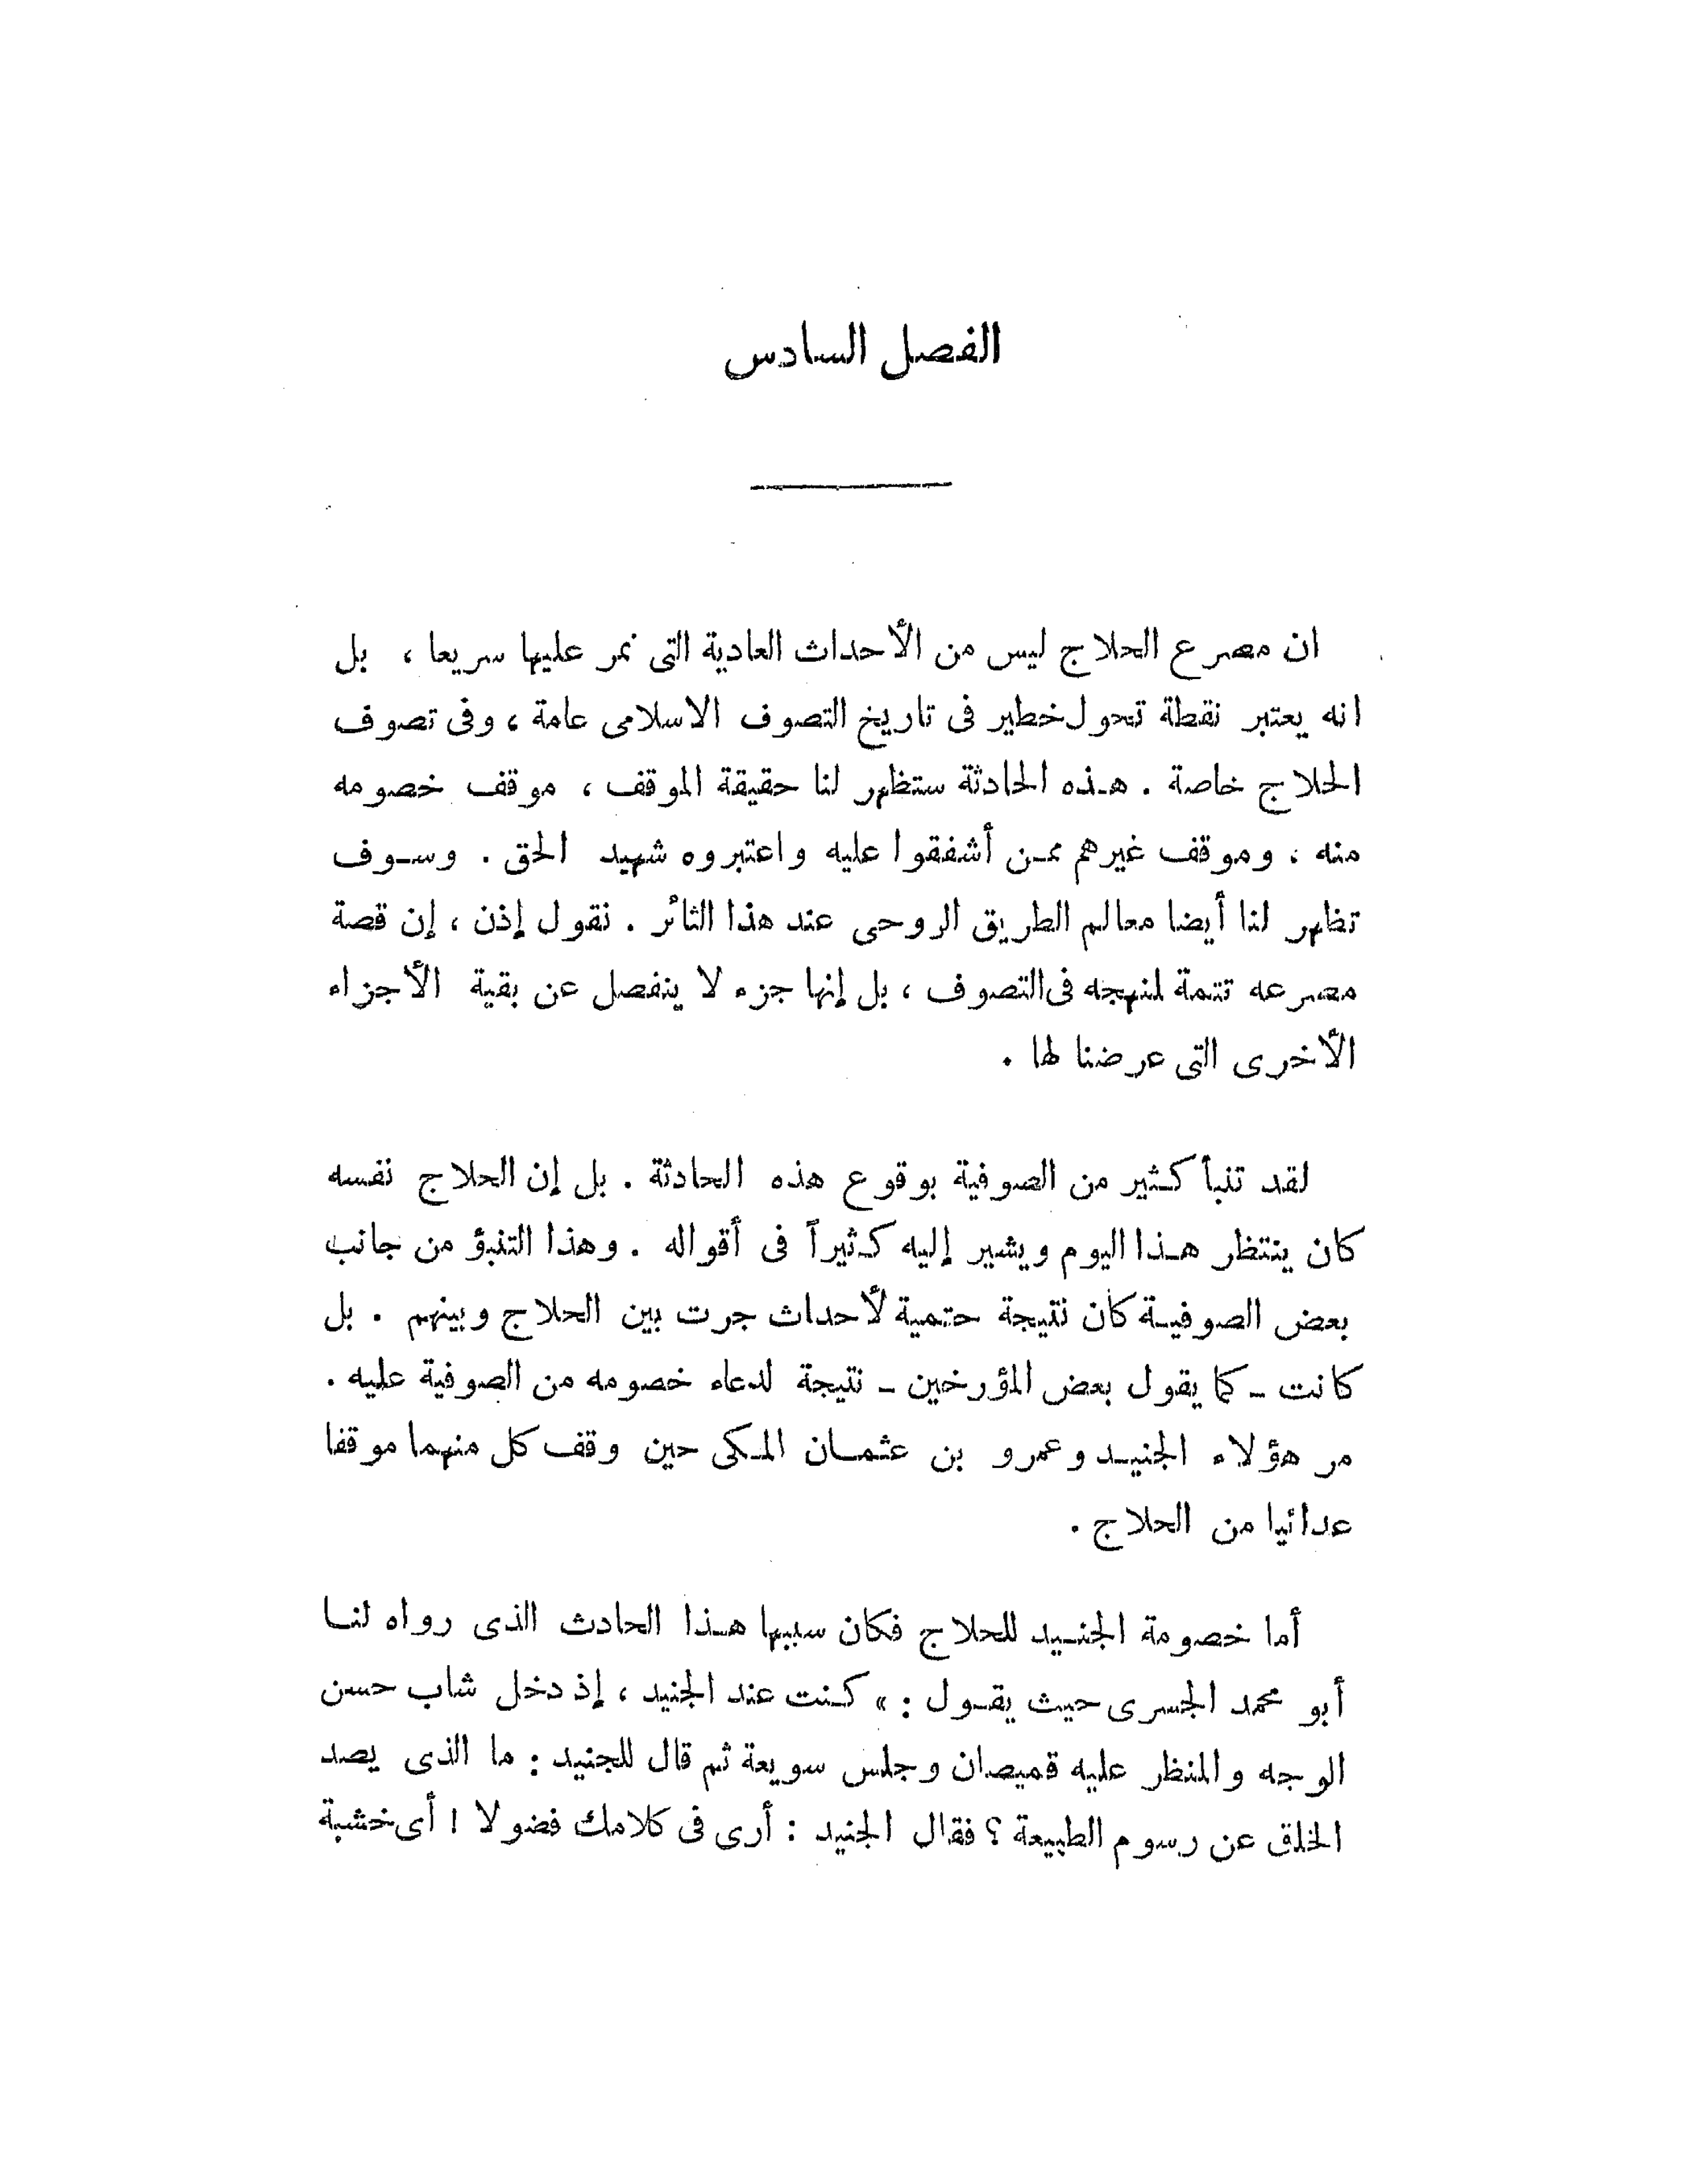 الفصل السادس
ان مصرع الحلاج ليس من الأحداث العادية التى نمر عليها سريعا ، بل
انه يعتبر نقطة تحول خطير فى تاريخ التصوف الاسلامى عامة ، وفى تصوف
الحلاج خاصة . هذه الحادثة ستظهر لنا حقيقة الموقف ، موقف خصومه
منه ، وموقف غيرهم ممن أشفقوا عليه واعتبروه شهيد الحق . وسوف
تظهر لنا أيضا معالم الطريق الروحى عند هذا الثائر . نقول إذن ، إن قصة
مصرعه تتمة لمنهجه فى التصوف ، بل إنها جزء لا ينفصل عن بقية الأجزاء
الأخرى التى عرضنا لها .
لقد تنبأ كثير من الصوفية بوقوع هذه الحادثة . بل إن الحلاج نفسه
كان ينتظر هذا اليوم ويشير إليه كثيراً فى أقواله . وهذا التنبؤ من جانب
بعض الصوفية كان نتيجة حتمية لأحداث جرت بين الحلاج وبينهم . بل
كانت - كما يقول بعض المؤرخين - نتيجة لدعاء خصومه من الصوفية عليه .
مر هؤلاء الجنيد وعمرو بن عثمان المكى حين وقف كل منهما موقفا
عدائيا من الحلاج .
أما خصومة الجنيد للحلاج فكان سببها هذا الحادث الذى رواه لنا
أبو محمد الجسرى حيث يقول : « كنت عند الجنيد ، إذ دخل شاب حسن
الوجه والمنظر عليه قميصان وجلس سويعة ثم قال للجنيد : ما الذى يصد
الخلق عن رسوم الطبيعة ؟ فقال الجنيد : أرى فى كلامك فضولا ! أى خشبة